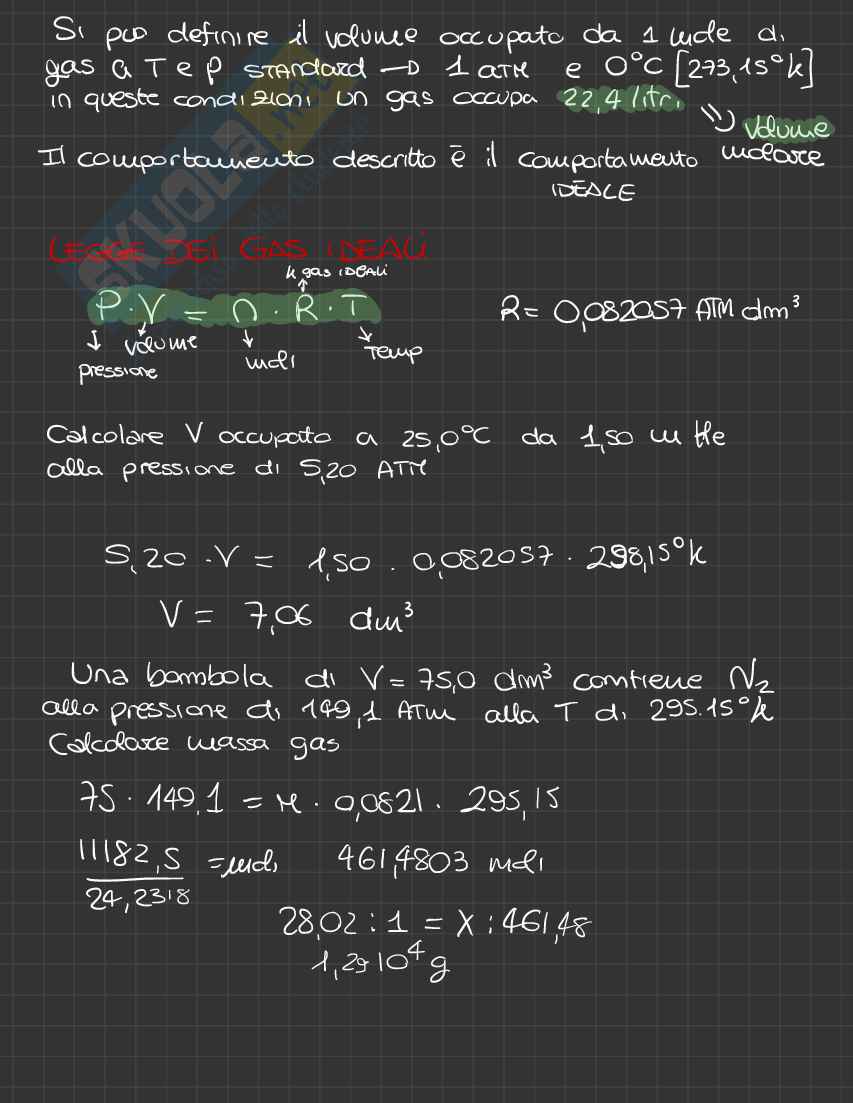 Si può definire il volume occupato da 1 mole di
gas a T e p STANDARD → 1 ATM e 0°C [273,15°K]
in queste condizioni un gas occupa 22,4 litri
Volume
molare
Il comportamento descritto è il comportamento
IDEALE
LEGGE DEI GAS IDEALI
k gas IDEALI
P·V = n·R·T
R = 0,082057 ATM dm³
pressione
volume
moli
Temp
Calcolare V occupato a 25,0°C da 1,50 m He
alla pressione di 5,20 ATM
5,20 · V = 1,50 · 0,082057 · 298,15°K
V = 7,06 dm³
Una bombola di V = 75,0 dm³ contiene N₂
alla pressione di 149,1 ATM alla T di 295.15°K
Calcolare massa gas
75 · 149,1 = M · 0,0821 · 295,15
11182,5 / 24,2318 = moli 461,4803 moli
28,02 : 1 = X : 461,48
1,29 10⁴ g
SKUOLA.net